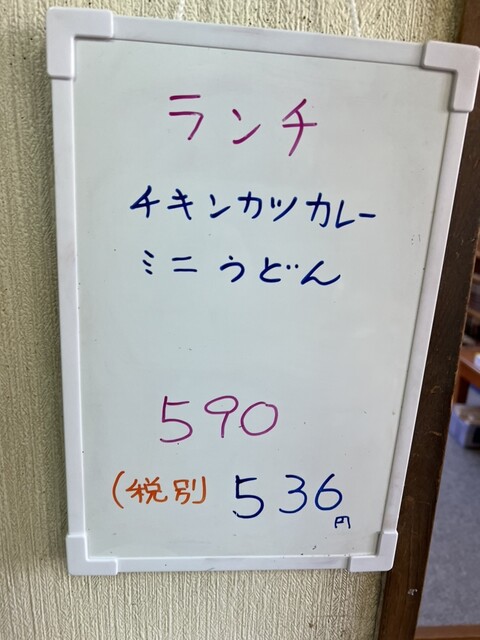 ランチ
チキンカツカレー
ミニうどん
590
(税別) 536円